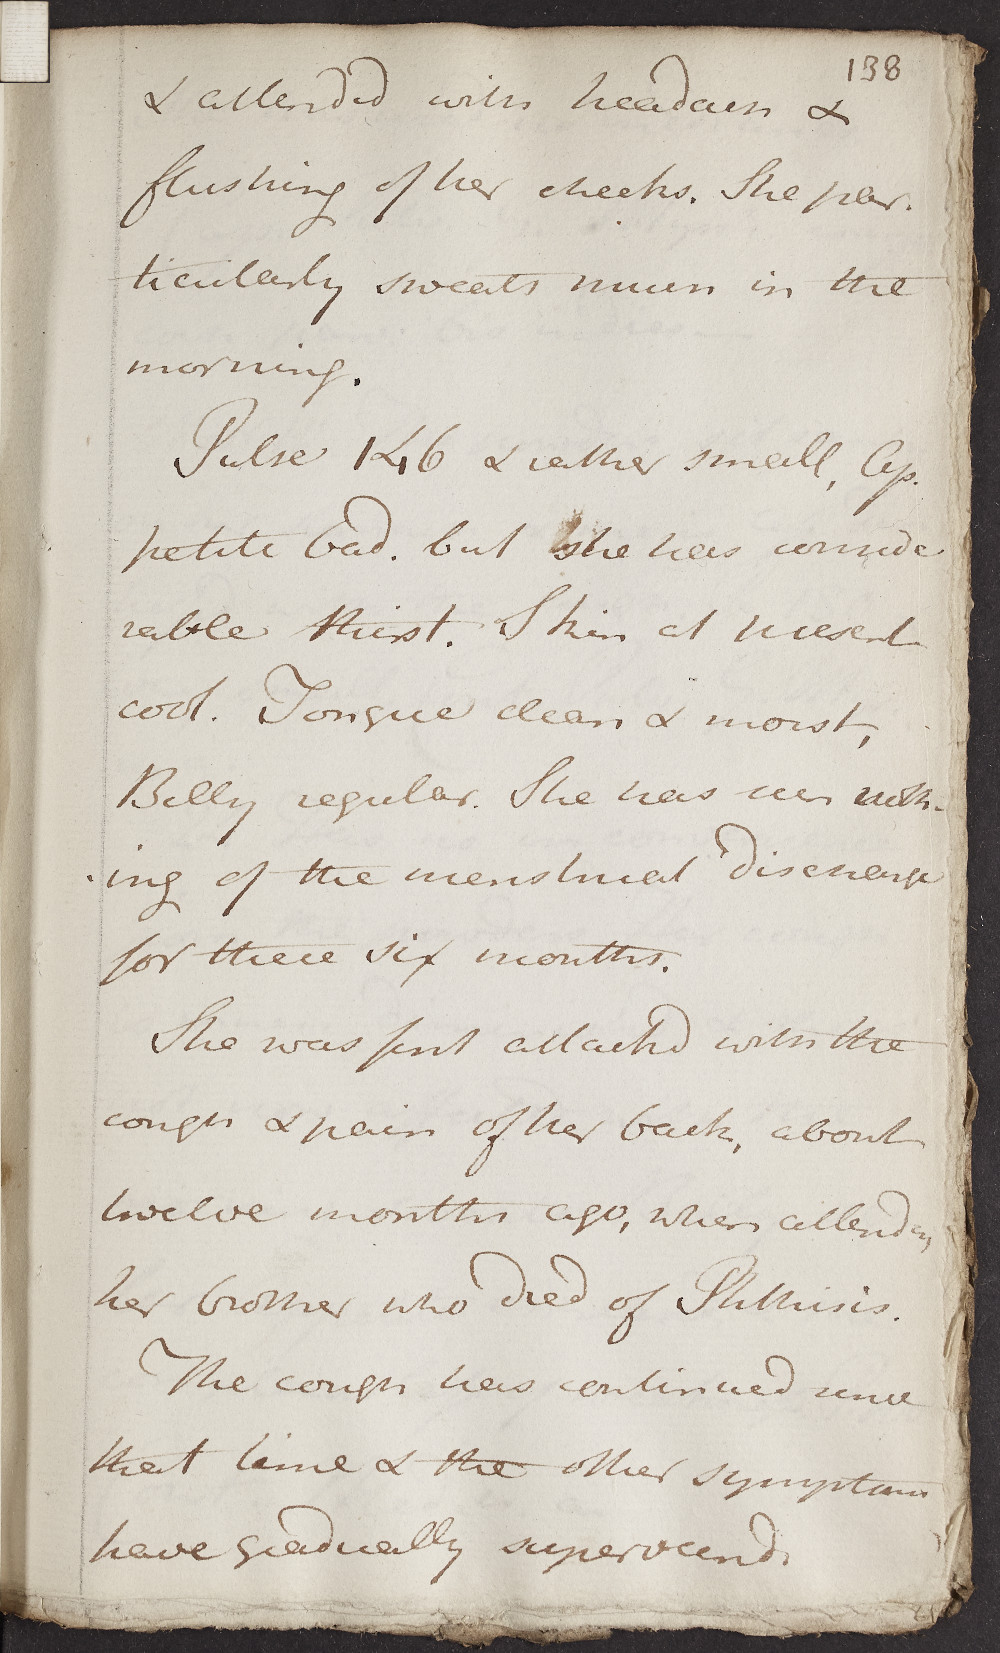 138
& attended with headach &
flushing of her cheeks. She par-
ticularly sweats much in the
morning.
Pulse 146 & rather small, Ap-
petite bad. but she has conside
rable thirst. Skin at present
cool. Tongue clean & moist,
Belly regular. She has seen noth-
ing of the menstrual discharge
for these six months.
She was first attackd with the
cough & pain of her back, about
twelve months ago, when attending
her brother who died of Phthisis.
The cough has continued since
that time & the other symptoms
have gradually supervened.